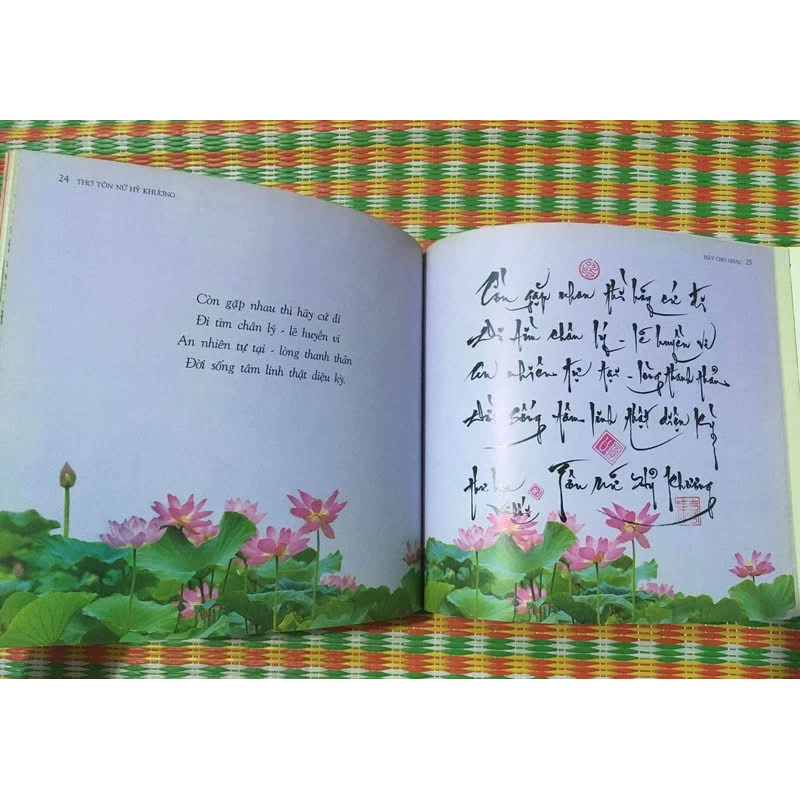 24 THƠ TÔN NỮ HỶ KHƯƠNG
Còn gặp nhau thì hãy cứ đi
Đi tìm chân lý - lẽ huyền vi
An nhiên tự tại - lòng thanh thản
Đời sống tâm linh thật diệu kỳ.
HÃY CHO NHAU 25
Còn gặp nhau thì hãy cứ đi
Đi tìm chân lý - lẽ huyền vi
An nhiên tự tại - lòng thanh thản
Đời sống tâm linh thật diệu kỳ
Tôn Nữ Hỷ Khương